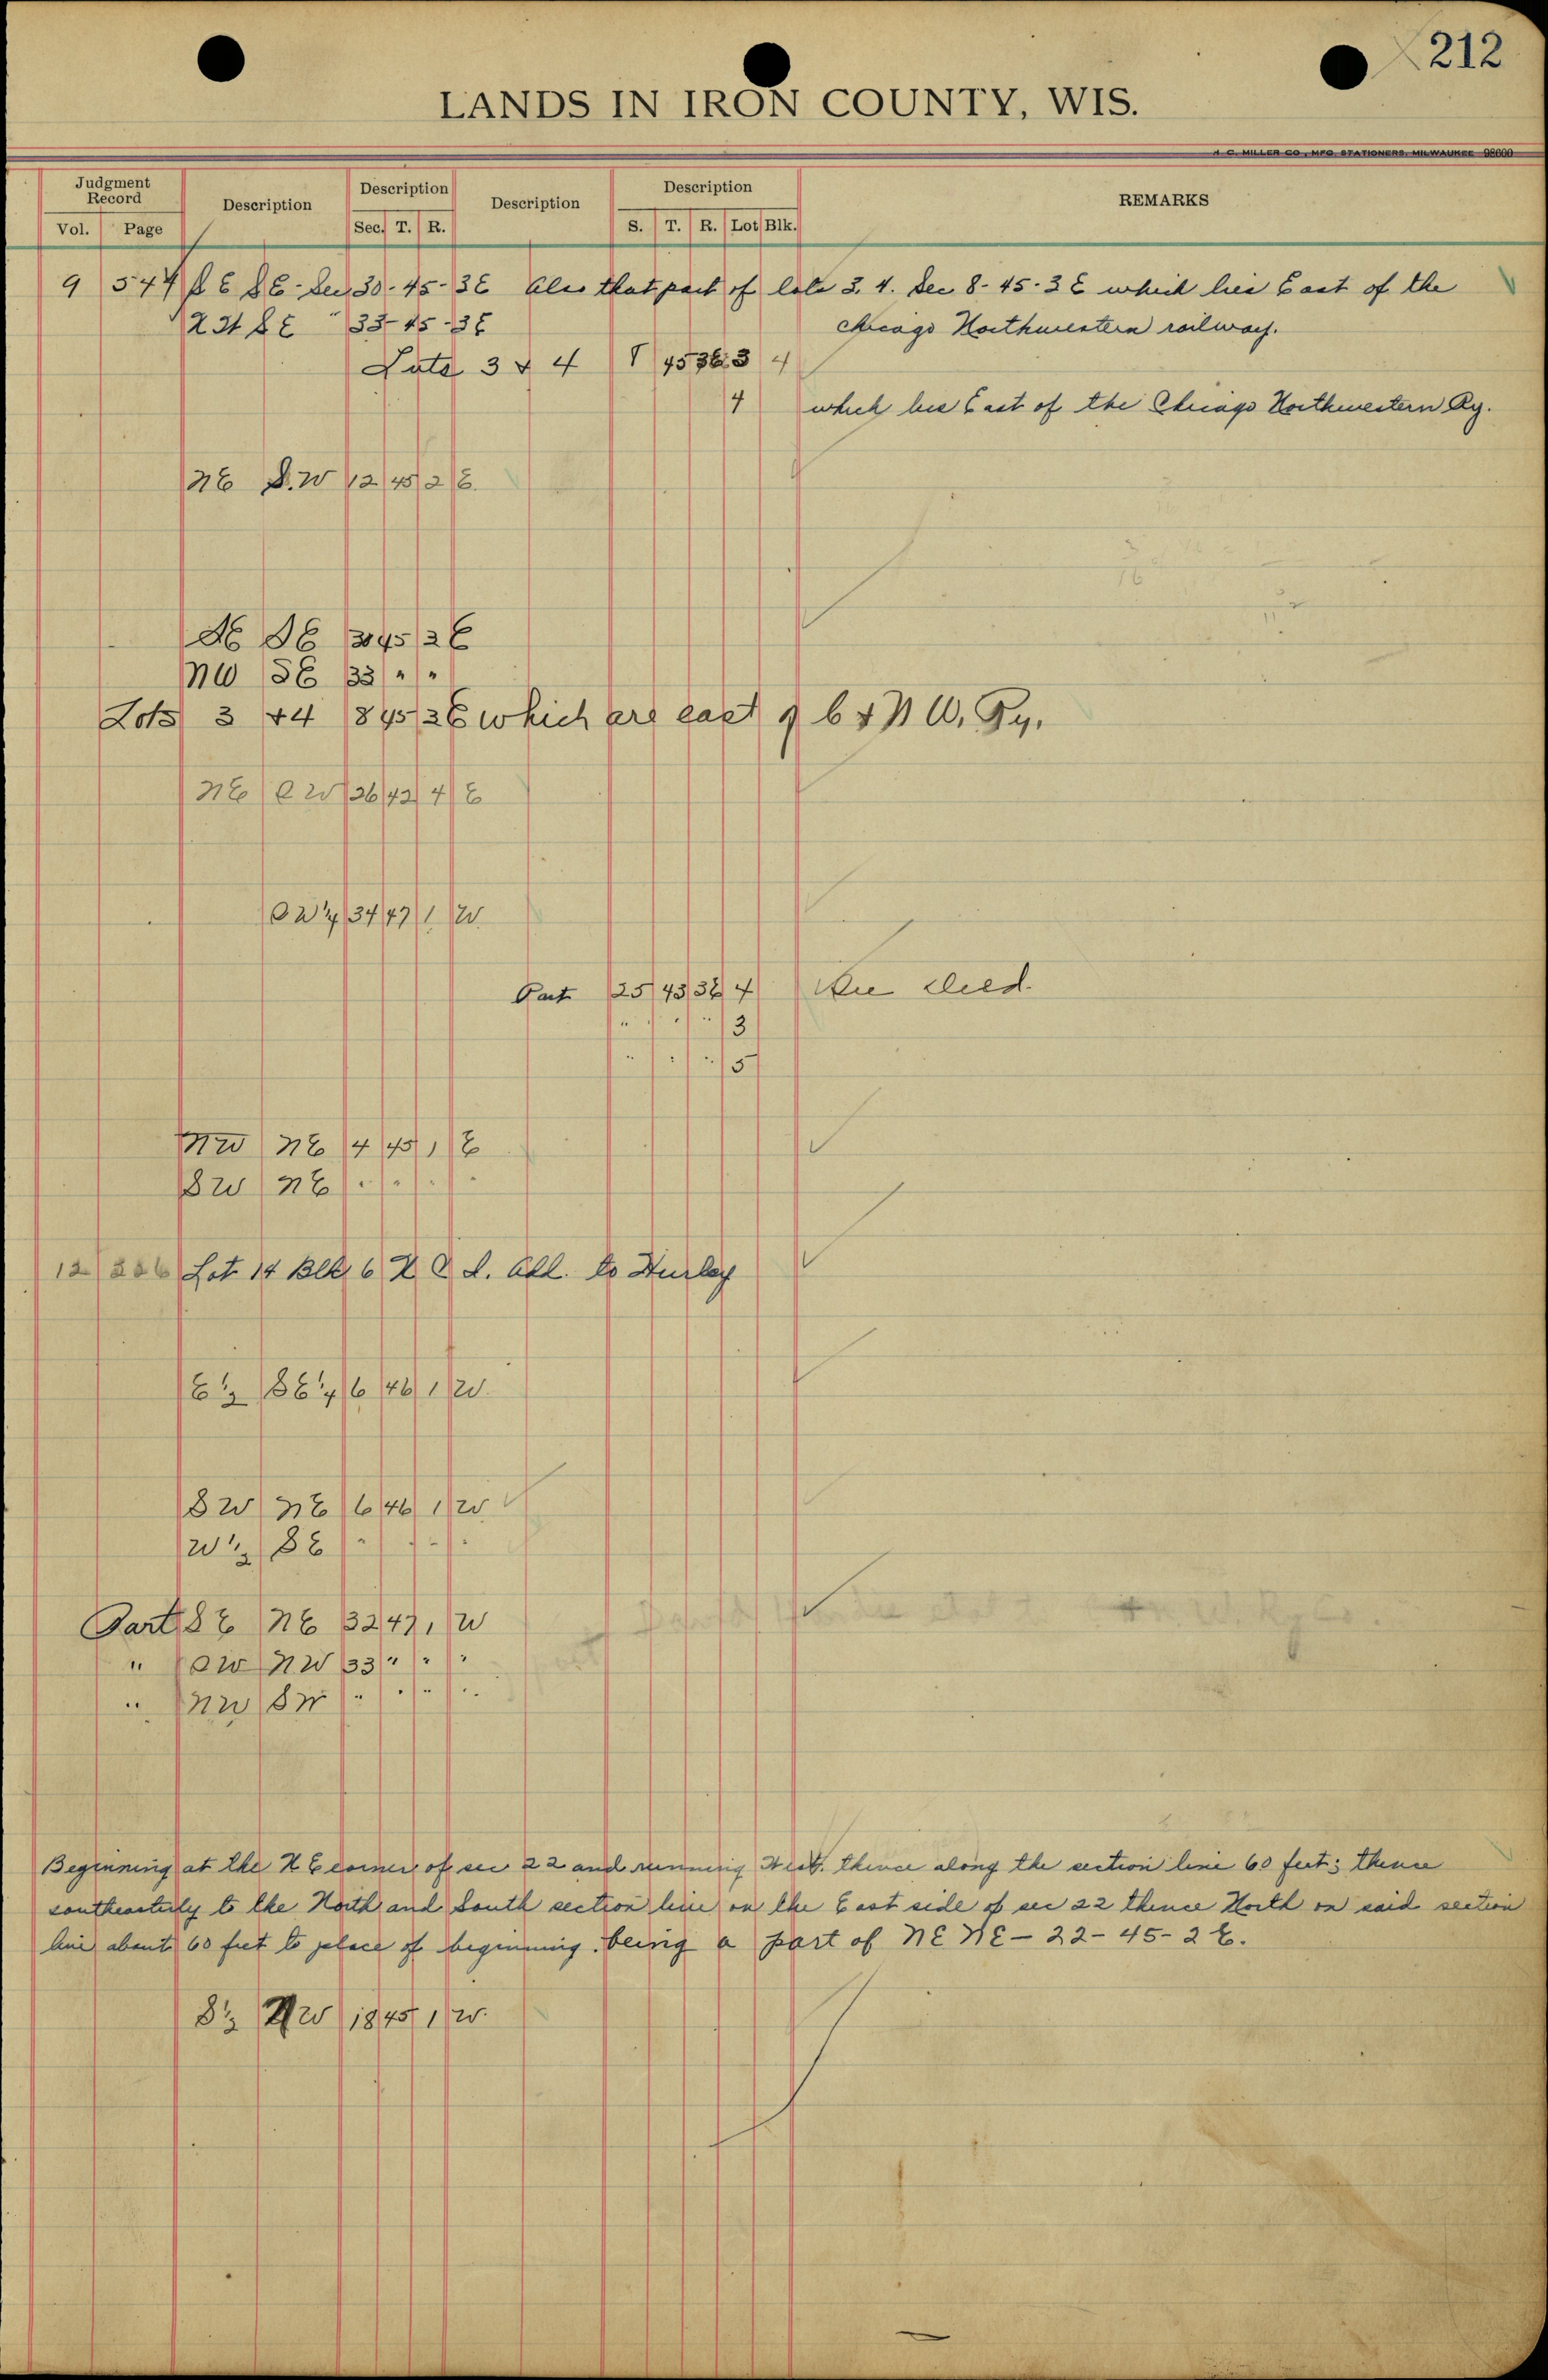 212
LANDS IN IRON COUNTY, WIS.
H. C. MILLER CO., MFG. STATIONERS, MILWAUKEE 98600
Judgment Record
Vol. Page
Description
Description
Sec. T. R.
Description
Description
S. T. R. Lot Blk.
REMARKS
9 544 S E S E - Sec 30 - 45 - 3E Also that part of lots 3. 4. Sec 8 - 45 - 3 E which lies East of the
S E " 33 - 45 - 3E Chicago Northwestern railway.
Lots 3 & 4 8 45 3E 3 4
4 which lies East of the Chicago Northwestern Ry.
NE S.W 12 45 2 E.
SE SE 30 45 3 E
NW SE 33 " "
Lots 3 +4 8 45 3 E which are east of C & N W. Ry.
NE S W 36 42 4 E
SW 1/4 34 47 1 W.
Part 25 43 3E 4 See deed.
" " " 3
" " " 5
NW NE 4 45 1 E
SW NE " " " "
12 Lot 14 Blk 6 Add. to Hurley
E 1/2 SE 1/4 6 46 1 W.
SW NE 6 46 1 W
W 1/2 SE " " " "
Part S E NE 32 47 1 W
" SW NW 33 " " "
" NW SW " " " "
Beginning at the N E corner of sec 22 and running West. thence along the section line 60 feet; thence
southeasterly to the North and South section line on the East side of sec 22 thence North on said section
line about 60 feet to place of beginning. being a part of NE NE - 22 - 45 - 2 E.
S 1/2 NW 18 45 1 W.